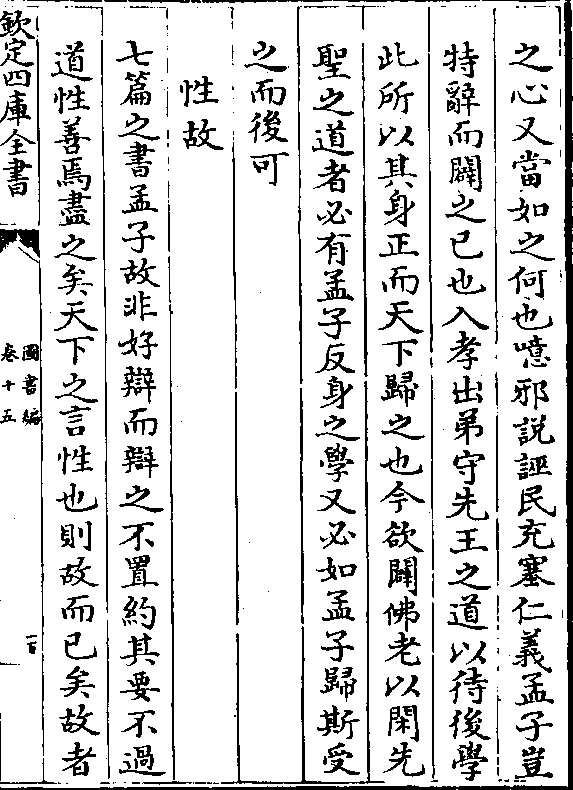 之心又當如之何也噫邪說誣民充塞仁義孟子豈
特辭而闢之已也入孝出弟守先王之道以待後學
此所以其身正而天下歸之也今欲闢佛老以閑先
聖之道者必有孟子反身之學又必如孟子歸斯受
之而後可
性故
七篇之書孟子故非好辯而辯之不置約其要不過
道性善焉盡之矣天下之言性也則故而已矣故者
欽定四庫全書
圖書編
卷十五